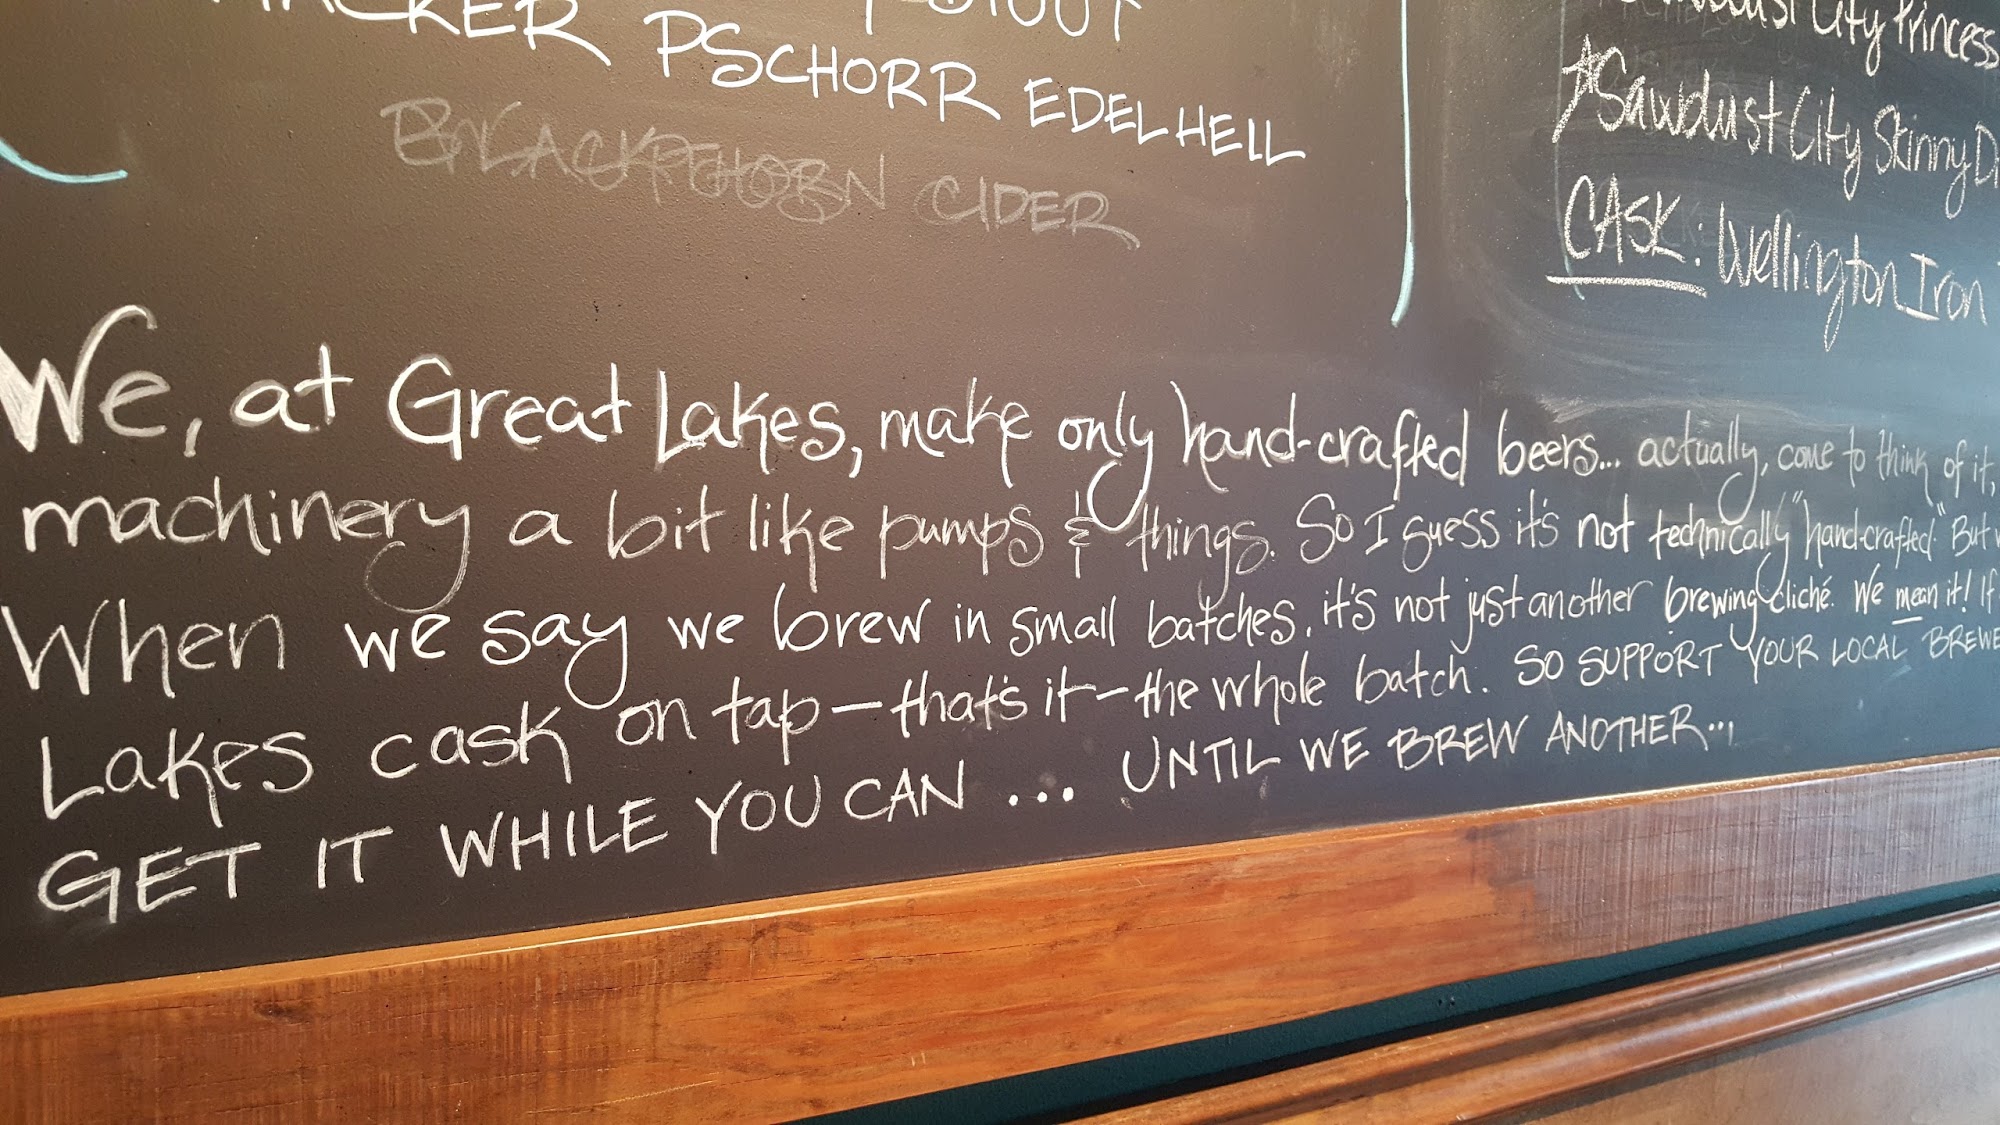 STOUT
HACKER PSCHORR EDELHELL
BLACKTHORN CIDER
Sawdust City Princess
*Sawdust City Skinny
CASK: Wellington Iron
We, at Great Lakes, make only hand-crafted beers... actually, come to think of it,
machinery a bit like pumps & things. So I guess it's not technically "hand-crafted." But
When we say we brew in small batches, it's not just another brewing cliché. We mean it! If
Lakes cask on tap—that's it—the whole batch. SO SUPPORT YOUR LOCAL
GET IT WHILE YOU CAN ... UNTIL WE BREW ANOTHER...